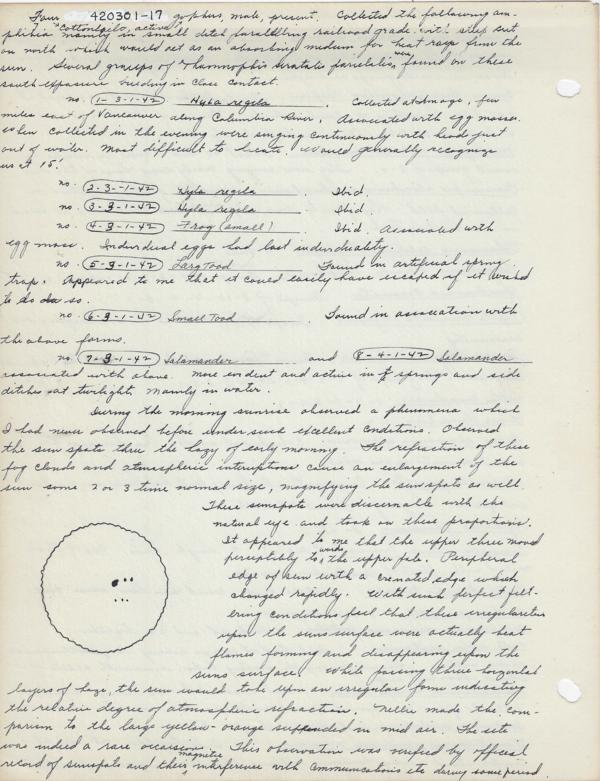 Four 420301-17 gophers, male, present. Collected the following am-
"Cottontails, active"
phibia mainly in small ditch paralleling railroad grade with steep cut
on north which would act as an absorbing medium for heat rays from the
sun. Several groups of "Thamnophis sirtalis parietalis" were found on these
south exposure sunning in close contact.
no. 1-3-1-42 Hyla regila. Collected at Image, few
miles east of Vancouver along Columbia River. Associated with egg masses.
When collected in the evening were singing continuously with heads just
out of water. Most difficult to locate. Would generally recognize
us at 15'.
no. 2-3-1-42 Hyla regila. Ibid.
no. 3-3-1-42 Hyla regila Ibid.
no. 4-3-1-42 Frog (small). Ibid. Associated with
egg mass. Individual eggs had lost individuality.
no. 5-3-1-42 Larg Toad Found in artificial spring
trap. Appeared to me that it could easily have escaped if it wished
to do so.
no. 6-3-1-42 Small Toad. Found in association with
the above forms.
no. 7-3-1-42 Salamander and 8-4-1-42 Salamander
associated with above. More evident and active in springs and side
ditches at twilight. Mainly in water.
During the morning sunrise observed a phenomena which
I had never observed before under such excellent conditions. Observed
the sun spots thru the hazy of early morning. The refraction of these
fog clouds and atmospheric interuptions cause an enlargement of the
sun some 2 or 3 time normal size, magnifying the sunspots as well.
These sunspots were discernable with the
natural eye and took on these proportions.
It appeared to me that the upper three moved
perceptibly towards the upper pole. Peripheral
edge of sun with a crenated edge which
changed rapidly. With such perfect filt-
ering conditions feel that these irregularities
upon the suns surface were actually heat
flames forming and disappearing upon the
suns surface. While passing three horzontal
layers of haze, the sun would take upon an irregular form indicating
the relative degree of atmospheric refraction. Nellie made the com-
parison to the large yellow-orange suspended in mid air. The site
was indeed a rare occassion. This observation was verified by official
record of sunspots and their magnetic interference with communications etc during same period.